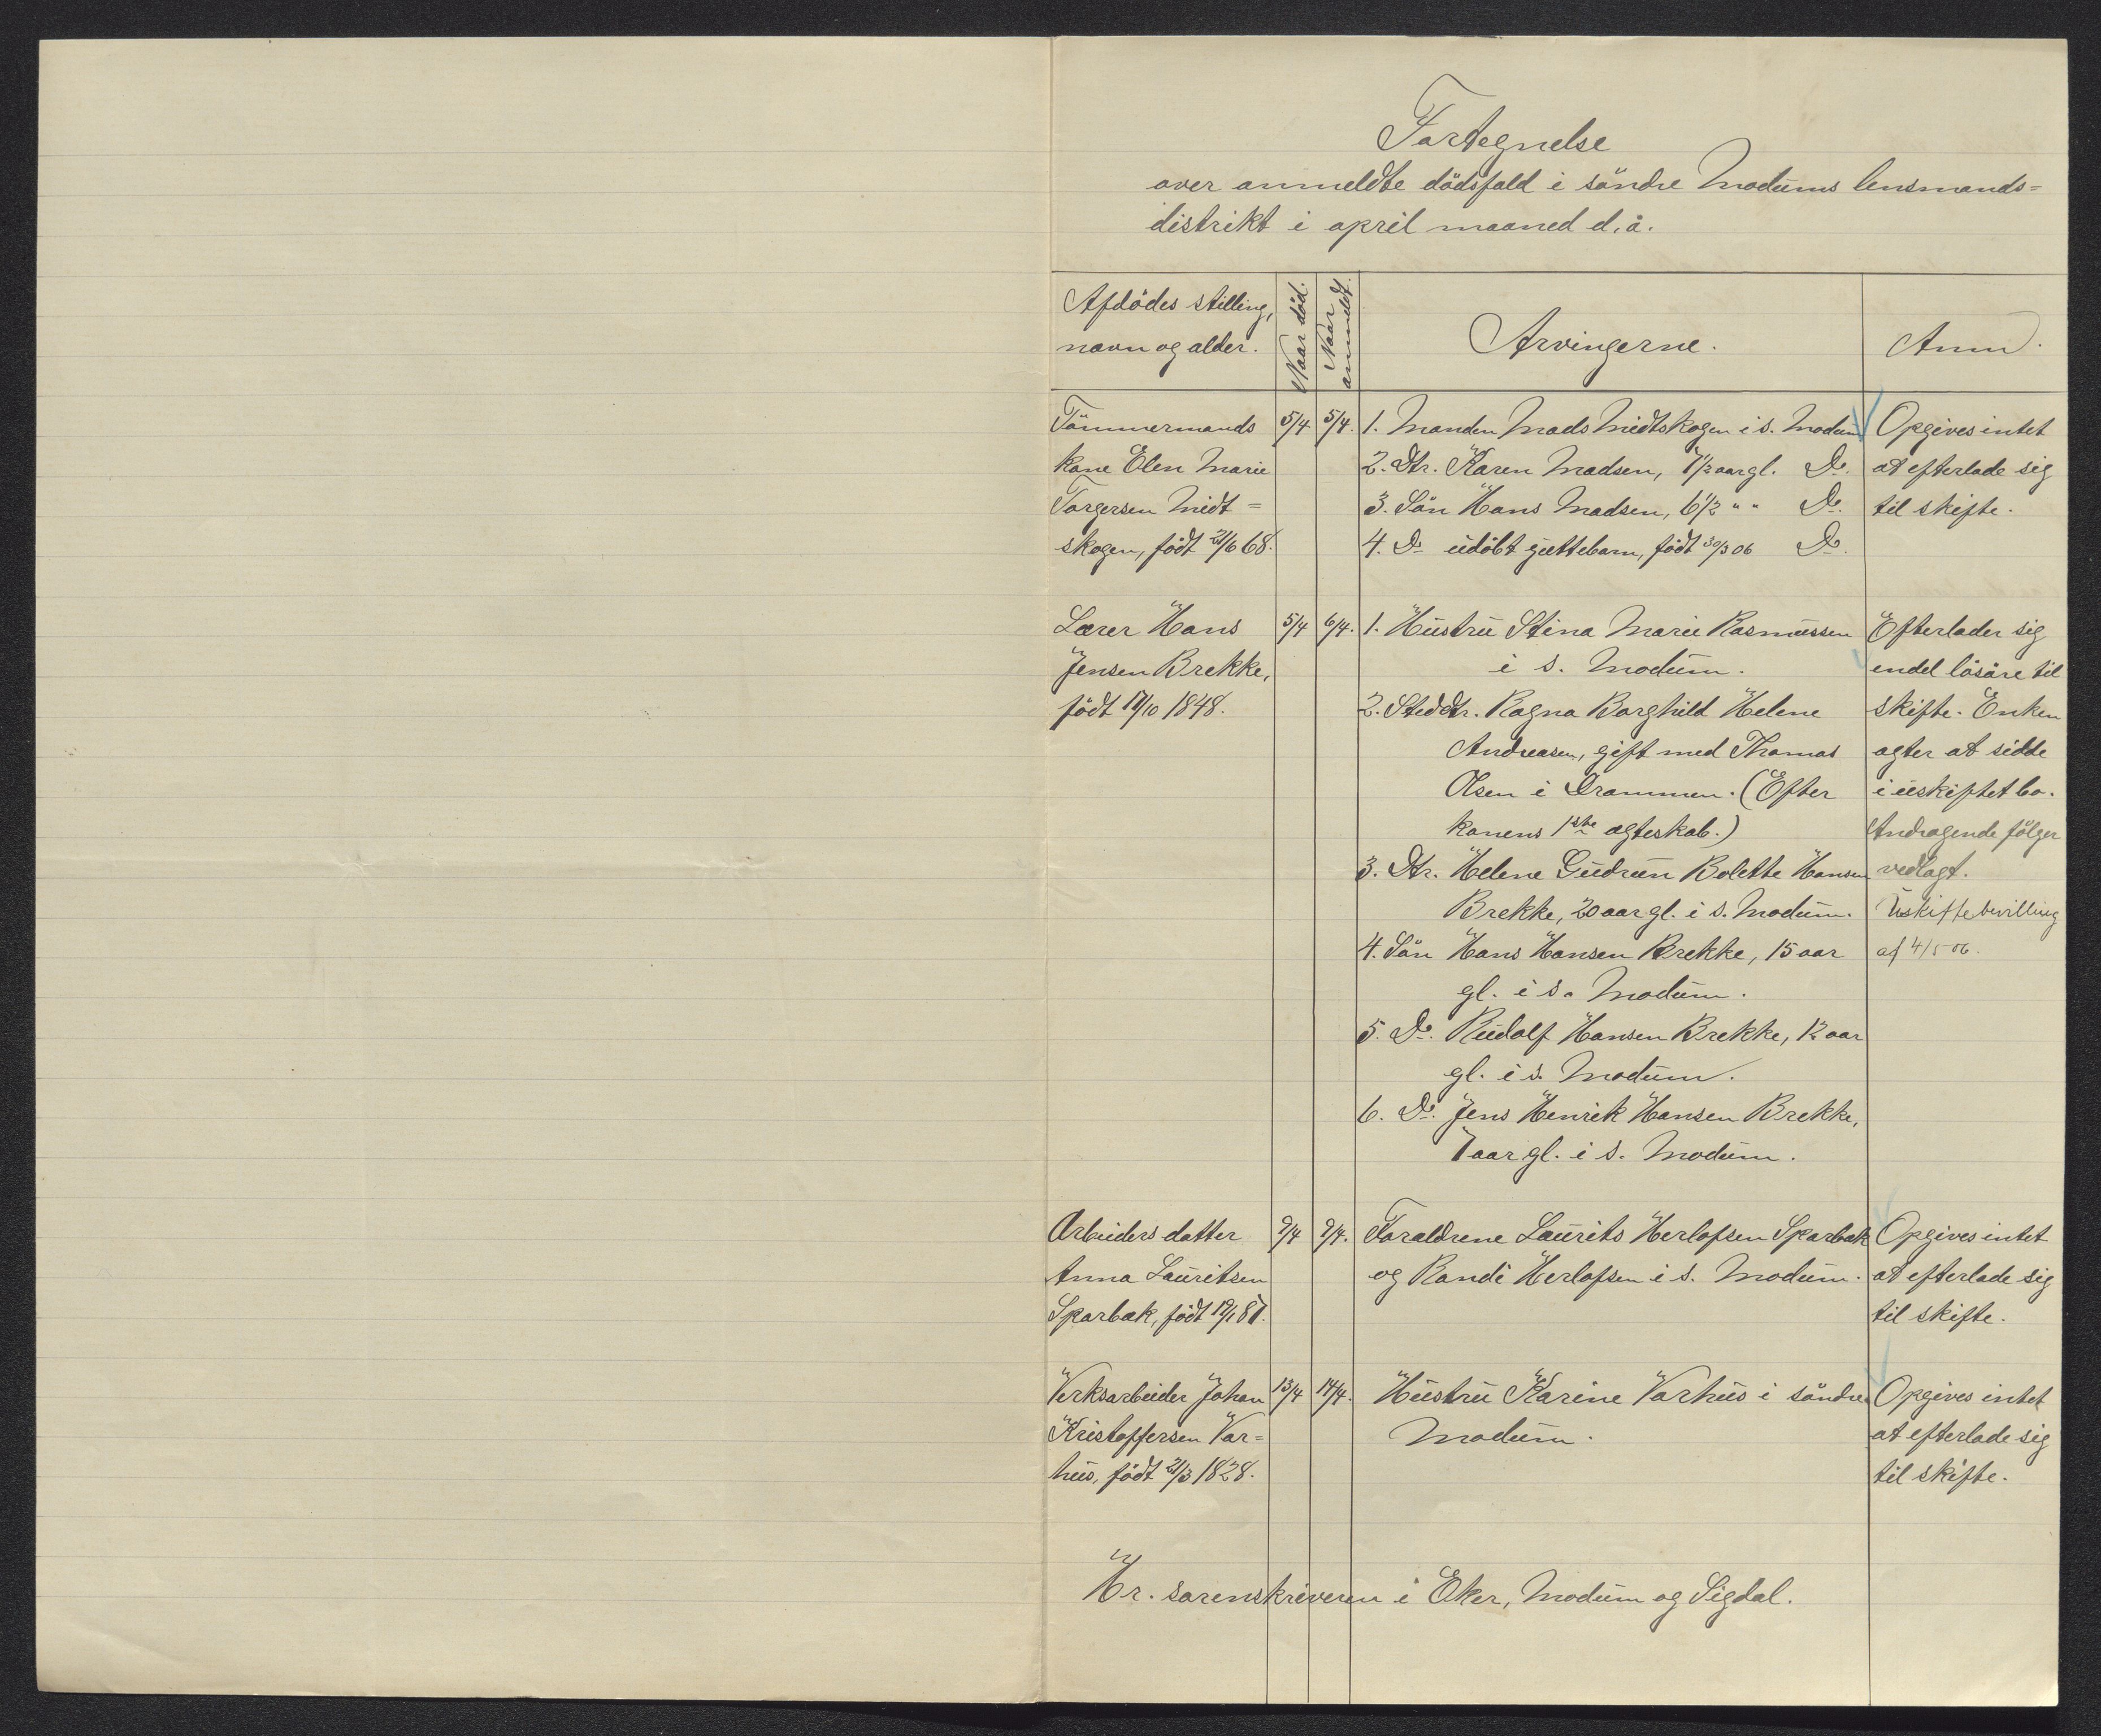 Fortegnelse
over anmeldte dödsfald i söndre Modums lensmands=
distrikt i april maaned d.å.
Afdödes stilling,
navn og alder.
Naar död.
Naar
anmeldt.
Arvingerne.
Anm.
Tömmermands
kone Elen Marie
Torgersen Midt=
skogen, födt 21/6 68.
5/4
5/4.
1. Manden Mads Midtskogen i s. Modum
2. Dtr. Karen Madsen, 7 1/2 aar gl. Do.
3. Sön Hans Madsen, 6 1/2 " " Do.
4. Do udöbt guttebarn, födt 30/3 06 Do.
Opgives intet
at efterlade sig
til skifte.
Lærer Hans
Jensen Brekke,
födt 17/10 1848.
5/4
6/4.
1. Hustru Stina Marie Rasmussen
i s. Modum.
2. Steddtr. Ragna Borghild Helene
Andreasen, gift med Thomas
Olsen i Drammen. (Efter
konens 1ste ægteskab.)
3. Dtr. Helene Gudrun Bolette Hansen
Brekke, 20 aar gl. i s. Modum.
4. Sön Hans Hansen Brekke, 15 aar
gl. i s. Modum.
5. Do. Rudolf Hansen Brekke, 12 aar
gl. i s. Modum.
6. Do. Jens Henrik Hansen Brekke,
7 aar gl. i s. Modum.
Efterlader sig
endel lösöre til
skifte. Enken
agter at sidde
i uskiftet bo.
Andragende fölger
vedlagt.
Uskiftebevilling
af 4/5 06.
Arbeiders datter
Anna Lauritsen
Sparbæk, födt 19/1 87.
9/4
9/4.
Forældrene Laurits Herlofsen Sparbæk
og Randi Herlofsen i s. Modum.
Opgives intet
at efterlade sig
til skifte.
Verksarbeider Johan
Kristoffersen Var=
hus, födt 21/3 1828.
13/4
14/4.
Hustru Karine Varhus i söndre
Modum.
Opgives intet
at efterlade sig
til skifte.
Hr. sorenskriveren i Eker, Modum og Sigdal.